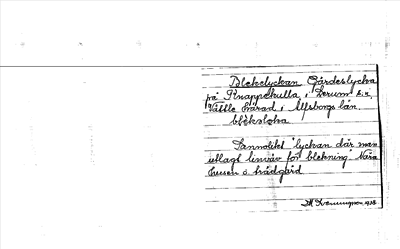 Blekelyckan Gårdeslycka
på Knappekulla, i Lerum s:n,
Vättle härad i Älfsborgs län.
bléksløka
Sannolikt "lyckan där man
utlagt linväv för blekning". Nära
husen o. trädgård
1928